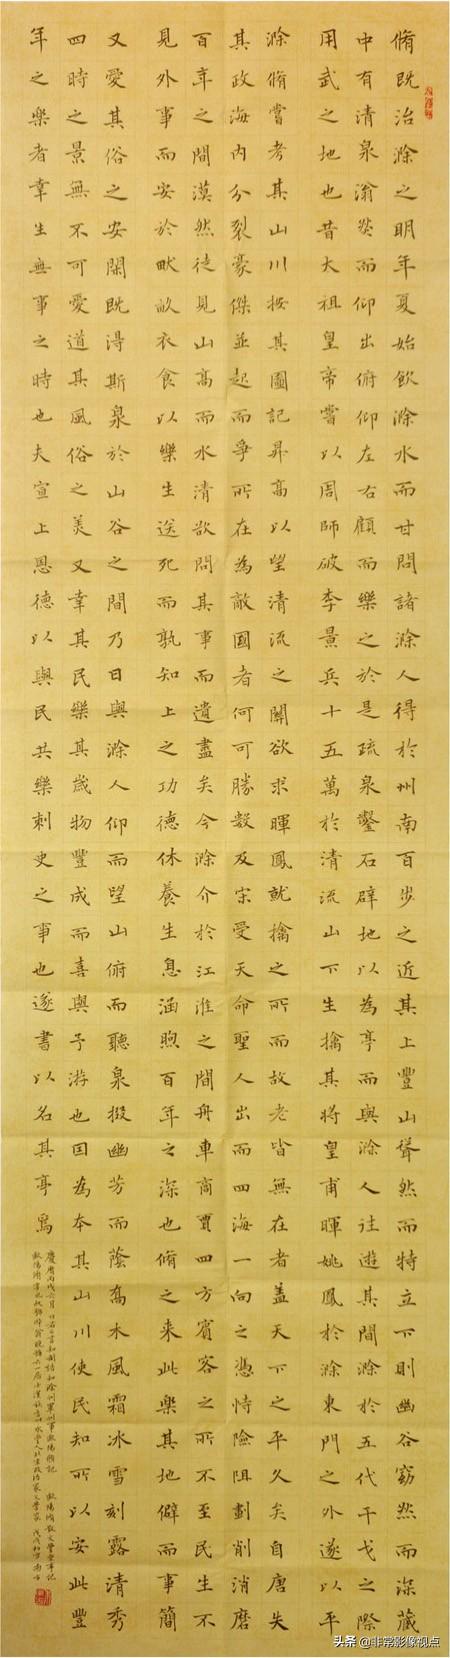 脩既治滁之明年夏始飲滁水而甘問諸滁人得於州南百步之近其上豐山聳然而特立下則幽谷窈然而深藏
中有清泉滃然而仰出俯仰左右顧而樂之於是疏泉鑿石辟地以為亭而與滁人往遊其間滁於五代干戈之際
用武之地也昔大祖皇帝嘗以周師破李景兵十五萬於清流山下生擒其將皇甫暉姚鳳於滁東門之外遂以平
滁脩嘗考其山川按其圖記昇高以望清流之關欲求暉鳳就擒之所而故老皆無在者蓋天下之平久矣自唐失
其政海內分裂豪傑並起而爭所在為敵國者何可勝數及宋受天命聖人出而四海一向之憑恃險阻劃削消磨
百年之間漠然徒見山高而水清欲問其事而遺盡矣今滁介於江淮之間舟車商賈四方賓客之所不至民生不
見外事而安於畎畝衣食以樂生送死而孰知上之功德休養生息涵煦百年之深也脩之来此樂其地僻而事簡
又愛其俗之安閑既得斯泉於山谷之間乃日與滁人仰而望山俯而聽泉掇幽芳而蔭喬木風霜冰雪刻露清秀
四時之景無不可愛道其風俗之美又幸其民樂其歲物豐成而喜與予游也因為本其山川使民知所以安此豐
年之樂者幸生無事之時也夫宣上恩德以與民共樂刺史之事也遂書以名其亭焉
慶曆丙戌六月日右正言知制誥知滁州軍州事歐陽脩記 歐陽脩散文豐樂亭記
歐陽脩字永叔號醉翁晚號六一居士漢族吉州永豐人北宋政治家文學家 戊戌初
头条 @非常影像视点